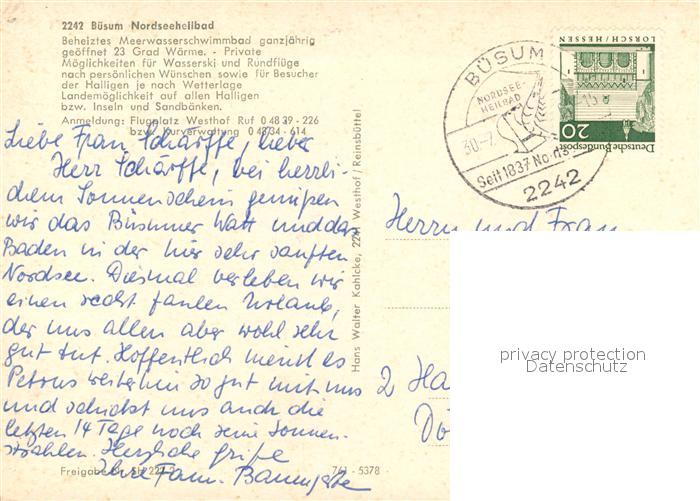 2242 Büsum Nordseeheilbad
Beheiztes Meerwasserschwimmbad ganzjährig
geöffnet 23 Grad Wärme. - Private
Möglichkeiten für Wasserski und Rundflüge
nach persönlichen Wünschen sowie für Besucher
der Halligen je nach Wetterlage
Landemöglichkeit auf allen Halligen
bzw. Inseln und Sandbänken.
Anmeldung: Flugplatz Westhof Ruf 0 48 39 - 226
bzw. Kurverwaltung 0 48 34 - 614
Liebe Frau Schärffe, lieber
Herr Schärffe, bei herrli-
chem Sonnenschein genießen
wir das Büsumer Watt und das
Baden in der hier sehr sanften
Nordsee. Diesmal verleben wir
einen recht faulen Urlaub,
der uns allen aber wohl sehr
gut tut. Hoffentlich meint es
Petrus weiterhin so gut mit uns
und schickt uns auch die
letzten 14 Tage noch seine Sonnen-
strahlen. Herzliche Grüße
Ihre Fam. Baumgarte
Freigabe Nr. SH
761 - 5378
Hans Walter Kahlcke, 2241 Westhof / Reinsbüttel
BÜSUM
NORDSEE-
HEILBAD
30.-7
Seit 1837
2242
LORSCH / HESSEN
20
Deutsche Bundespost
Herrn und Frau
2 Ha
Dö
privacy protection
Datenschutz